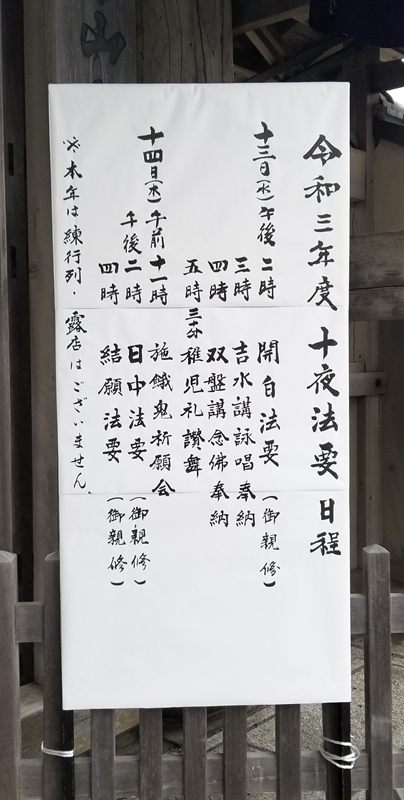 山
令和三年度 十夜法要 日程
十三日(水)午後 二時 開白法要(御親修)
三時 吉水講詠唱奉納
四時 双盤講念佛奉納
五時三十分 稚児礼讃舞
十四日(木)午前 十一時 施餓鬼祈願会
午後 二時 日中法要(御親修)
四時 結願法要(御親修)
※本年は練行列・露店はございません。